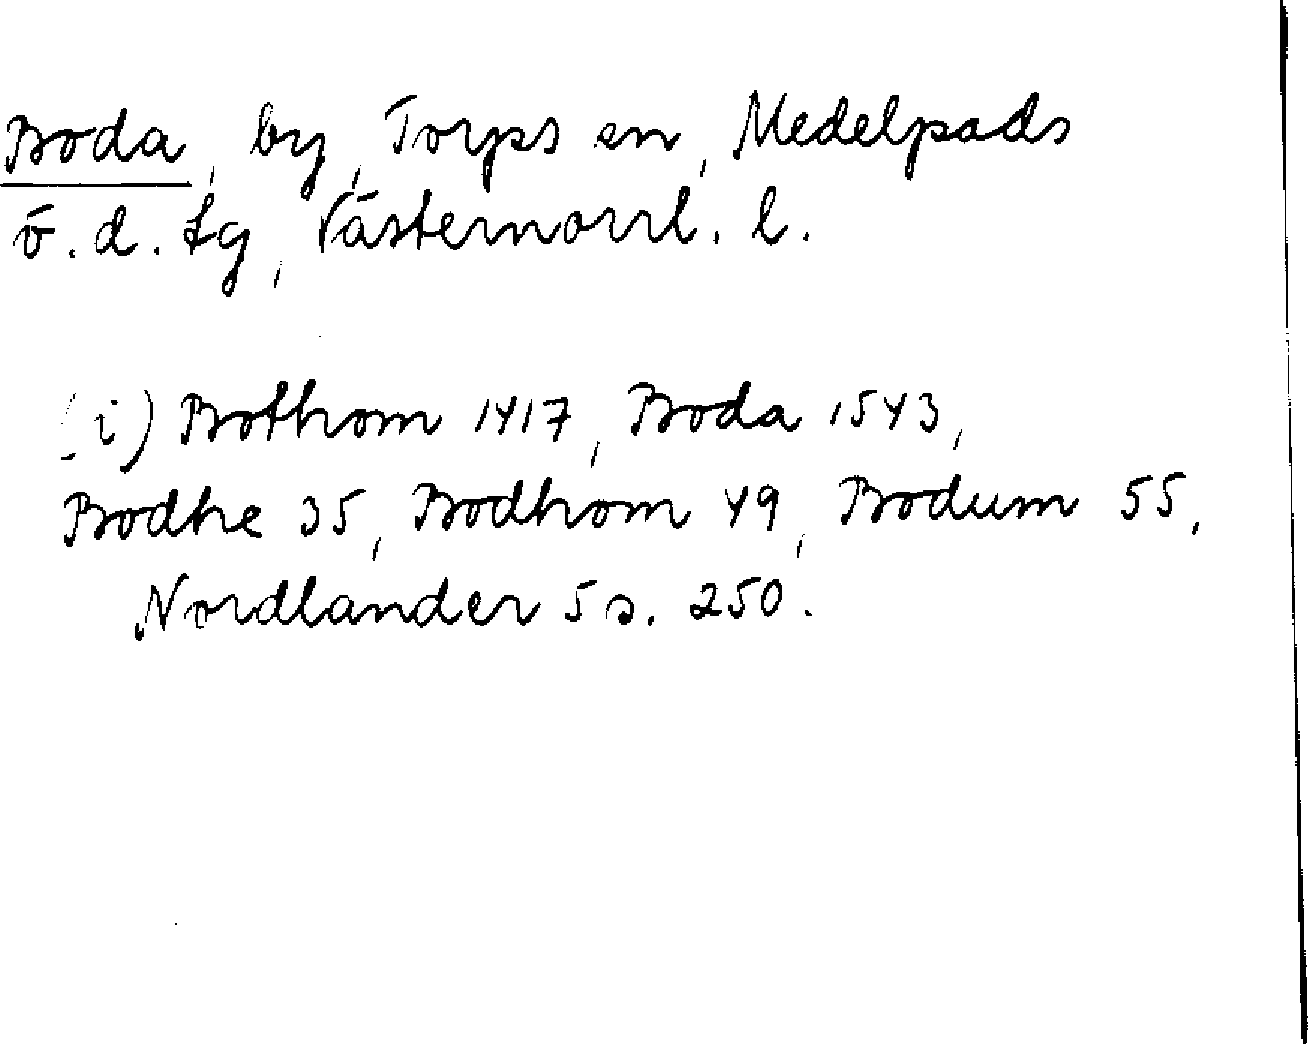 Boda, by, Torps sn, Medelpads
v. d. tg, Västernorrl. l.
(i) Bothom 1417, Boda 1543,
Bodhe 35, Bodhom 49, Bodum 55,
Nordlander 5 s. 250.